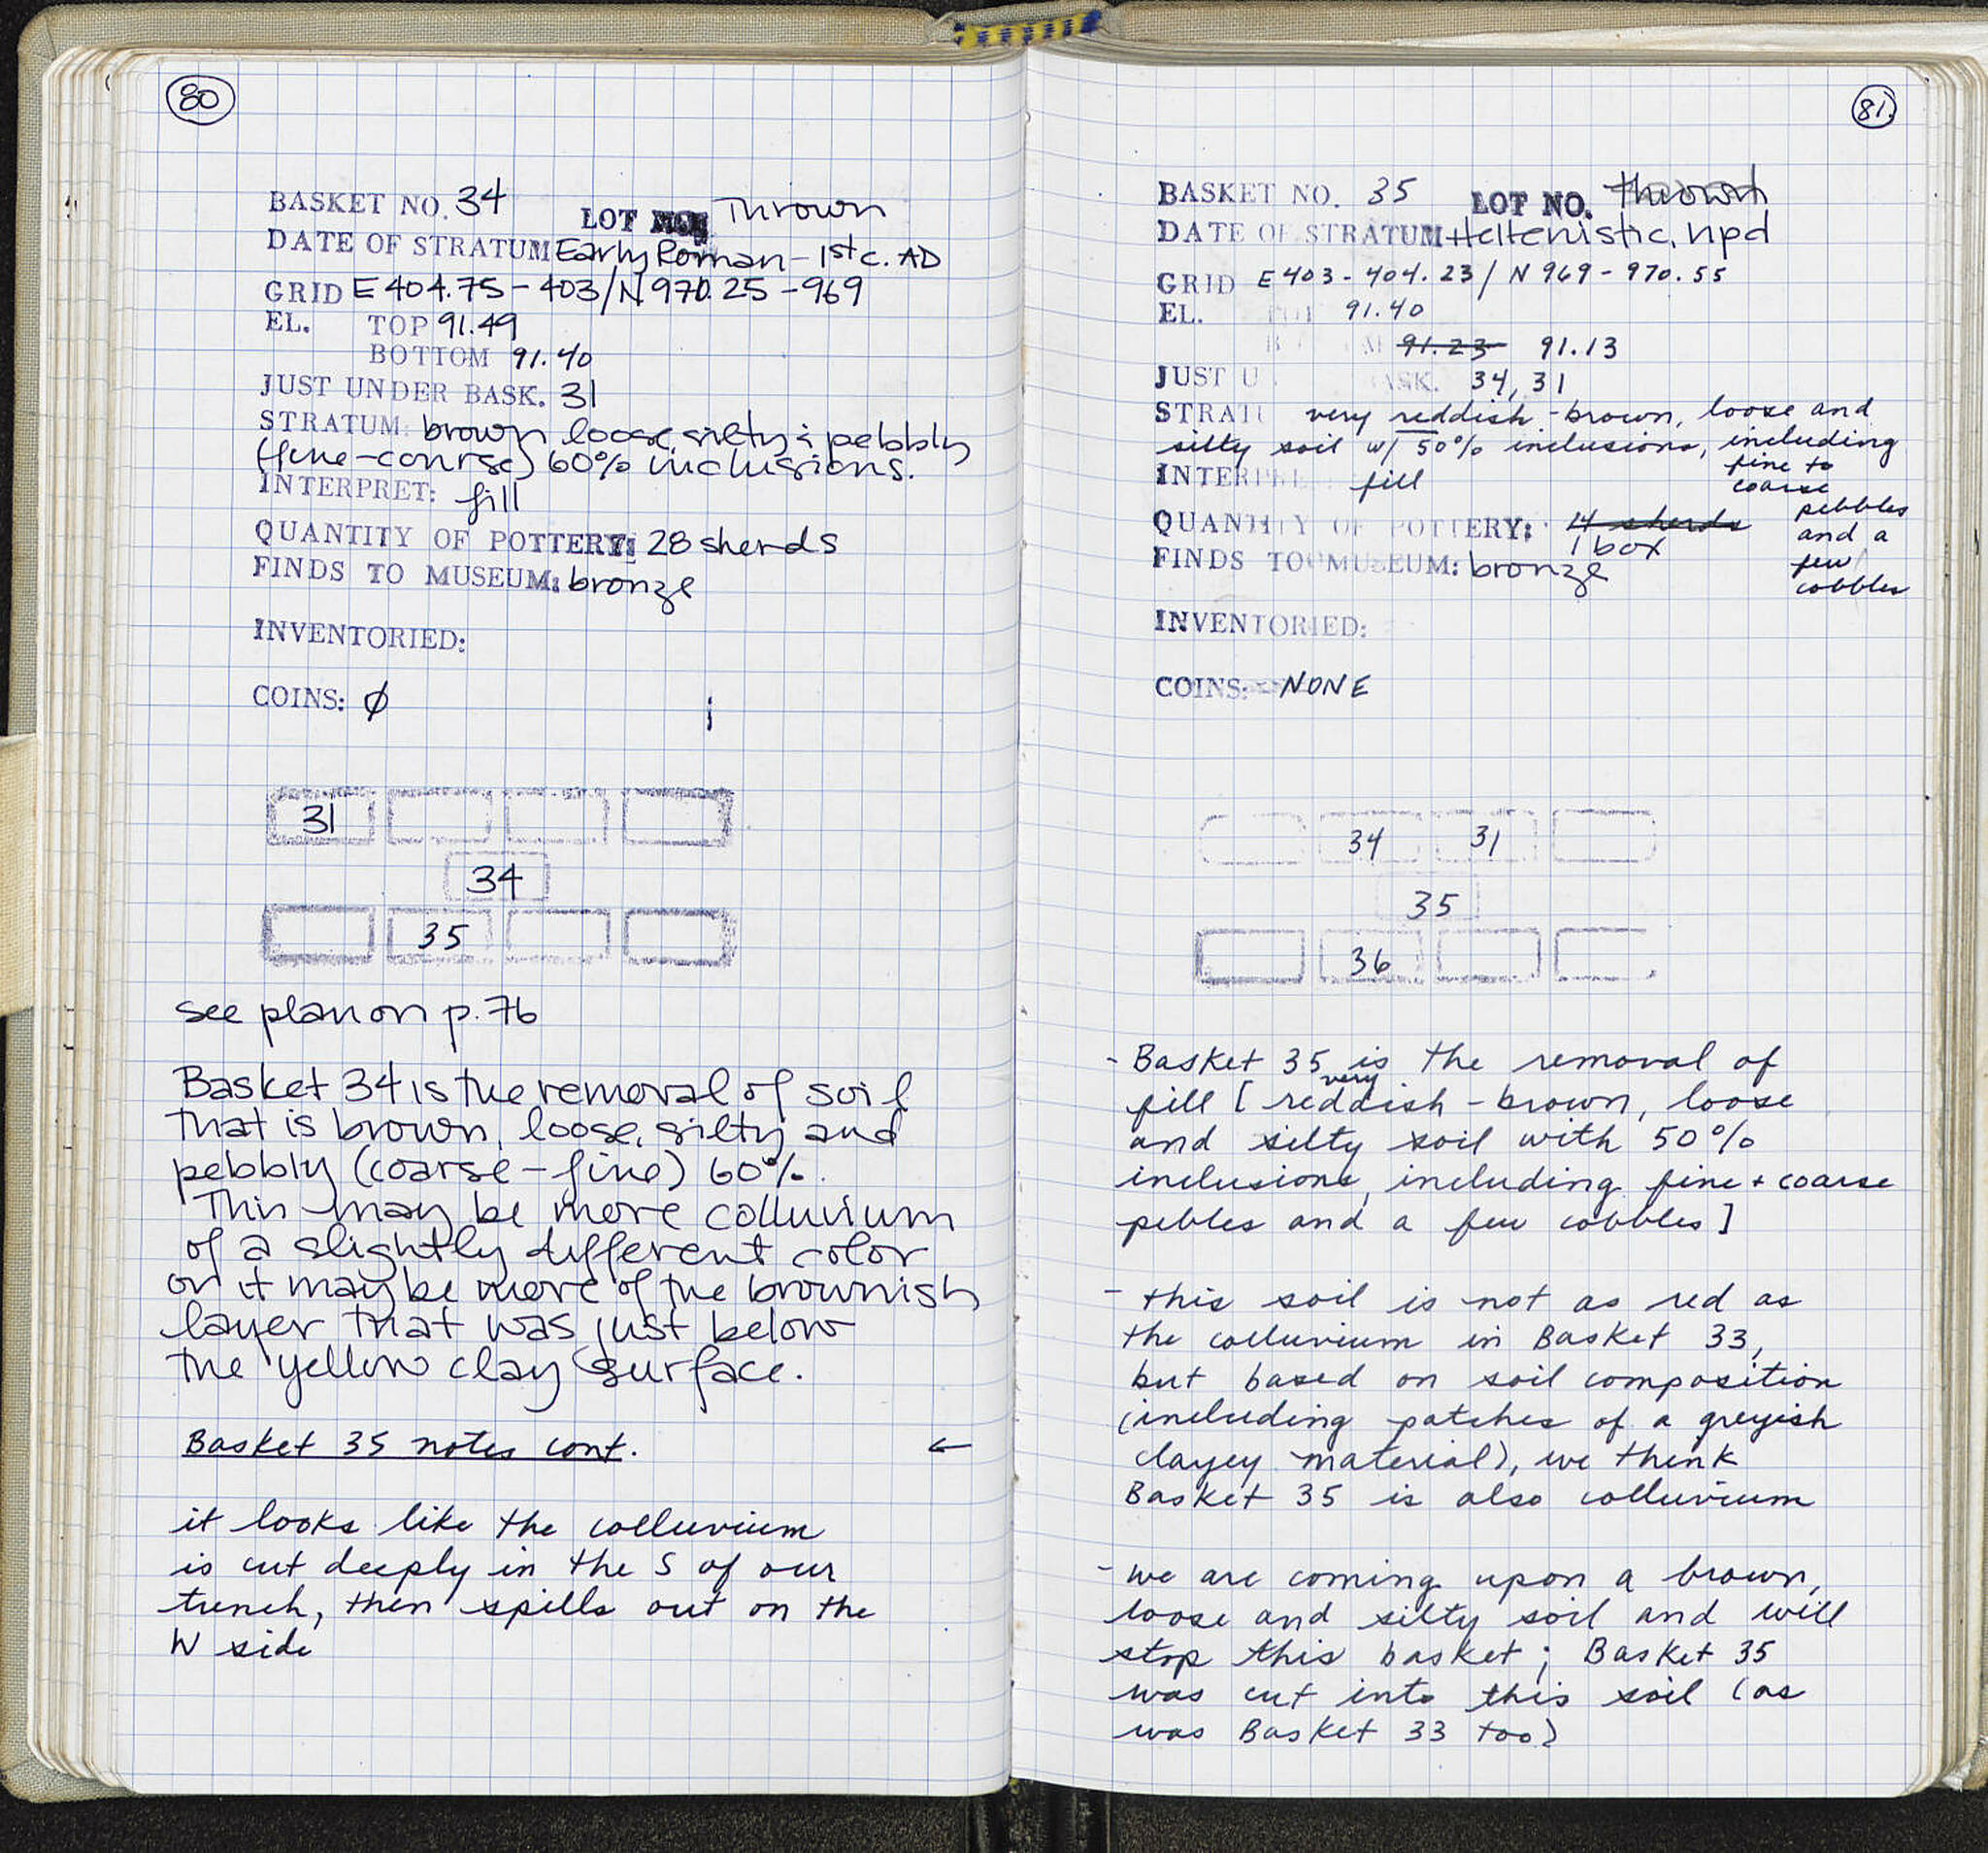 80
BASKET NO. 34 LOT Thrown
DATE OF STRATUM Early Roman - 1st c. AD
GRID E 404.75 - 403/N 970.25 - 969
EL. TOP 91.49
BOTTOM 91.40
JUST UNDER BASK. 31
STRATUM: brown loose, silty & pebbly
(fine-coarse) 60% inclusions.
INTERPRET: fill
QUANTITY OF POTTERY: 28 sherds
FINDS TO MUSEUM: bronze
INVENTORIED:
COINS: Ø
31
34
35
see plan on p. 76
Basket 34 is the removal of soil
that is brown, loose, silty and
pebbly (coarse - fine) 60%.
This may be more colluvium
of a slightly different color
or it may be more of the brownish
layer that was just below
the yellow clay surface.
Basket 35 notes cont. ←
it looks like the colluvium
is cut deeply in the S of our
trench, then spills out on the
W side
81
BASKET NO. 35 LOT NO. thrown
DATE OF STRATUM Hellenistic, npd
GRID E 403 - 404.23 / N 969 - 970.55
EL. TOP 91.40
91.23 91.13
JUST U ASK. 34, 31
STRATU very reddish - brown, loose and
silty soil w/ 50% inclusions, including
fine to
coarse
pebbles
and a
few
cobbles
INTERPRE fill
QUANTITY OF POTTERY: 14 sherds
1 box
FINDS TO MUSEUM: bronze
INVENTORIED:
COINS: NONE
34 31
35
36
- Basket 35 is the removal of
fill [ very reddish - brown, loose
and silty soil with 50%
inclusions, including fine + coarse
pebles and a few cobbles ]
- this soil is not as red as
the colluvium in Basket 33,
but based on soil composition
(including patches of a greyish
clayey material), we think
Basket 35 is also colluvium
- we are coming upon a brown,
loose and silty soil and will
stop this basket; Basket 35
was cut into this soil (as
was Basket 33 too)